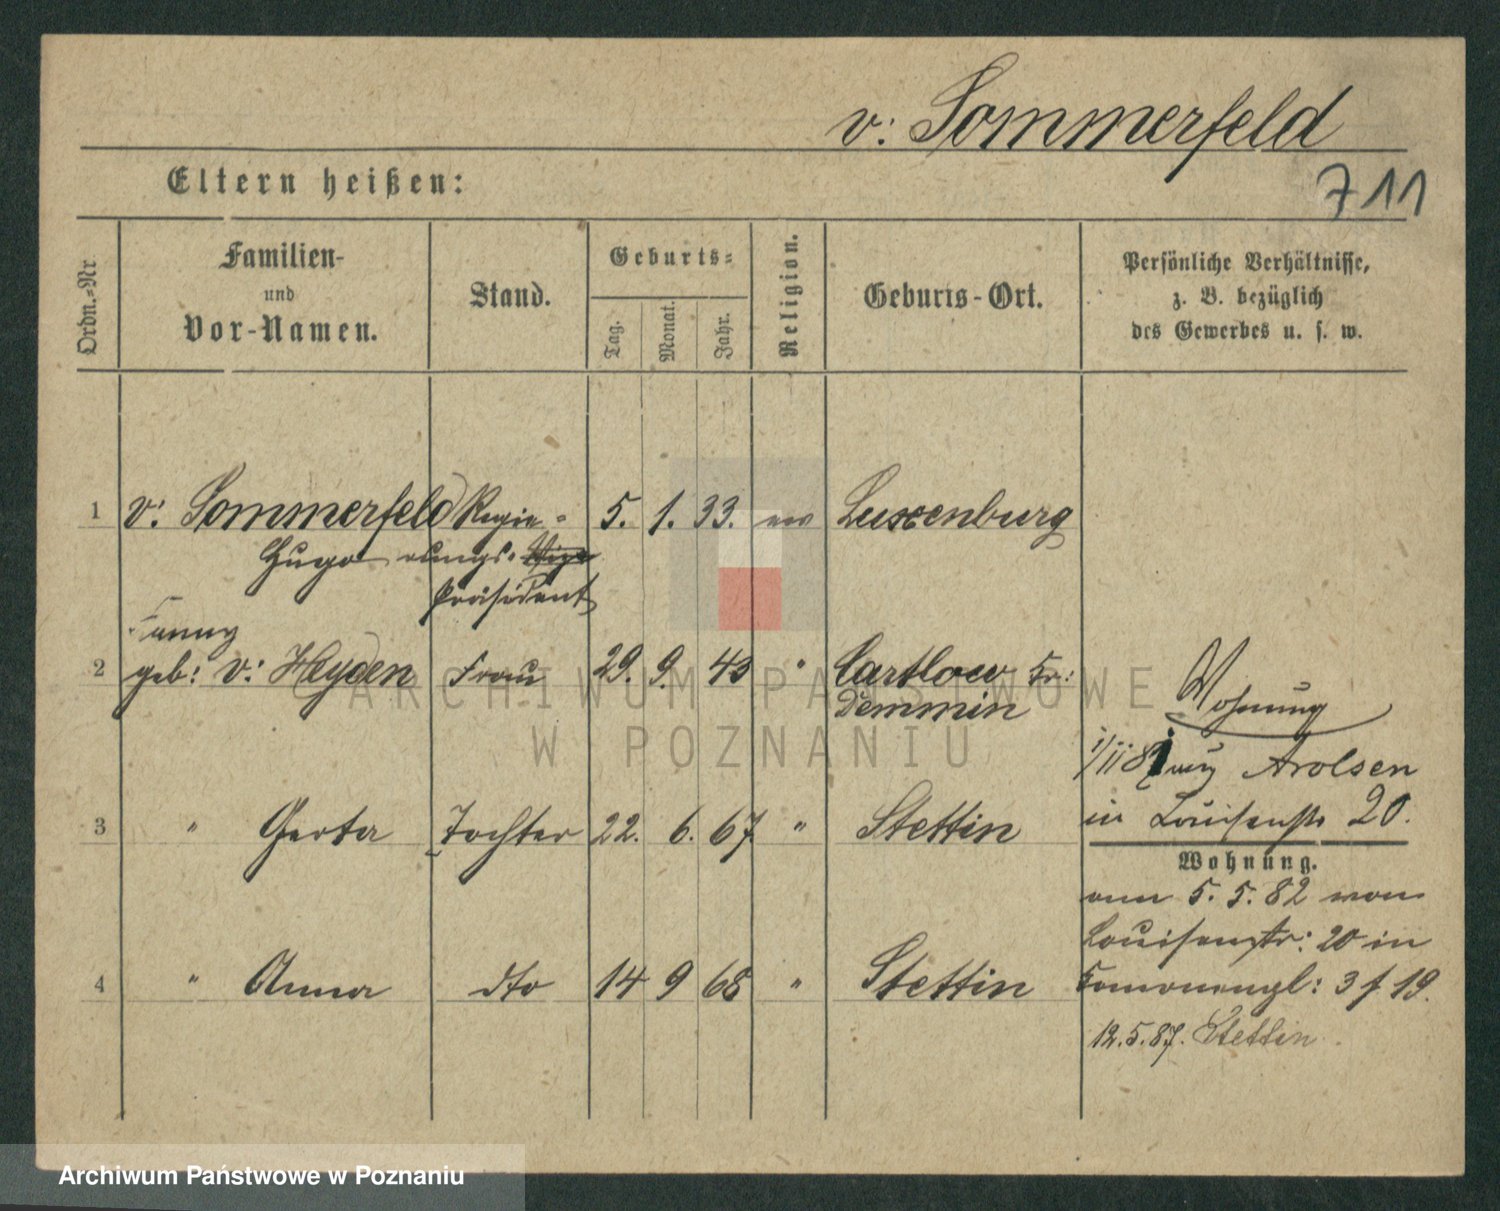 v: Sommerfeld
711
Eltern heißen:
Ordn.-Nr
Familien-
und
Vor-Namen.
Stand.
Geburts-
Tag.
Monat.
Jahr.
Religion.
Geburts-Ort.
Persönliche Verhältnisse,
z. B. bezüglich
des Gewerbes u. s. w.
1 v: Sommerfeld Regie- 5. 1. 33. ev Luxenburg
Hugo rungs-
Präsident
Fanny
2 geb: v: Heyden Frau 29. 9. 43 " Cartlow Kr:
Demmin
Wohnung
Arolsen
3 " Gerta Tochter 22. 6. 67 " Stettin
in Louisenstr 20.
Wohnung.
am 5. 5. 82 von
Louisenstr: 20 in
4 " Anna dto 14 9 68 " Stettin
3 f 19.
12.5.87. Stettin
ARCHIWUM PAŃSTWOWE
W POZNANIU
Archiwum Państwowe w Poznaniu